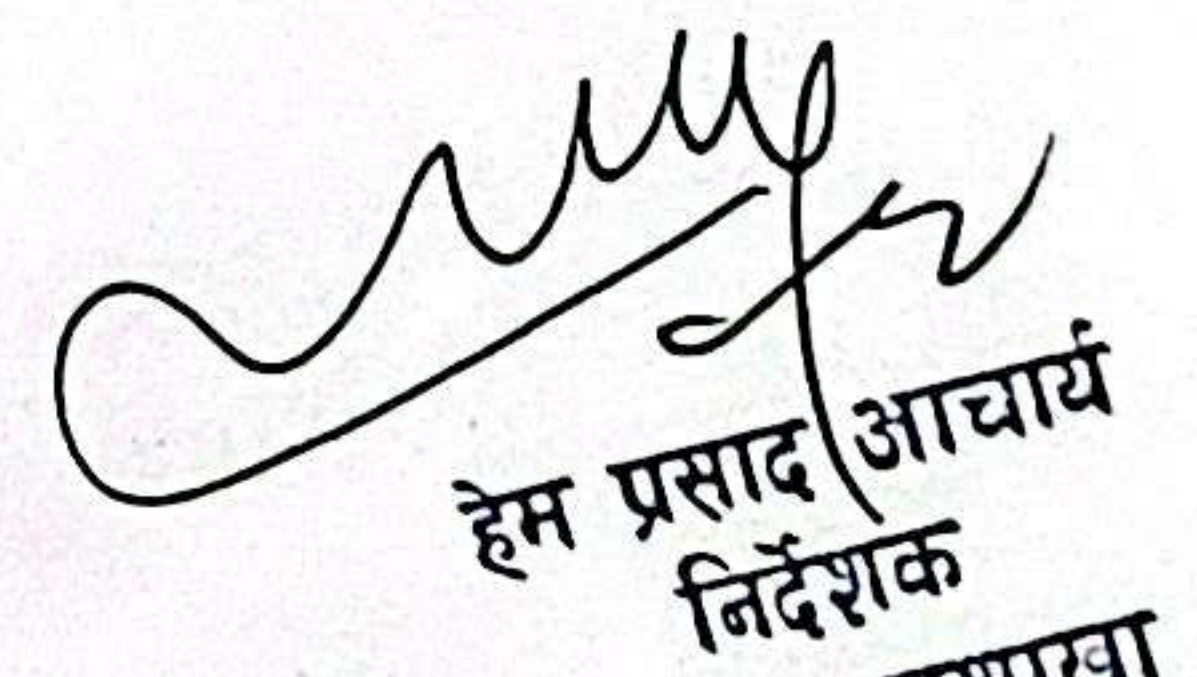 हेम प्रसाद आचार्य
निर्देशक